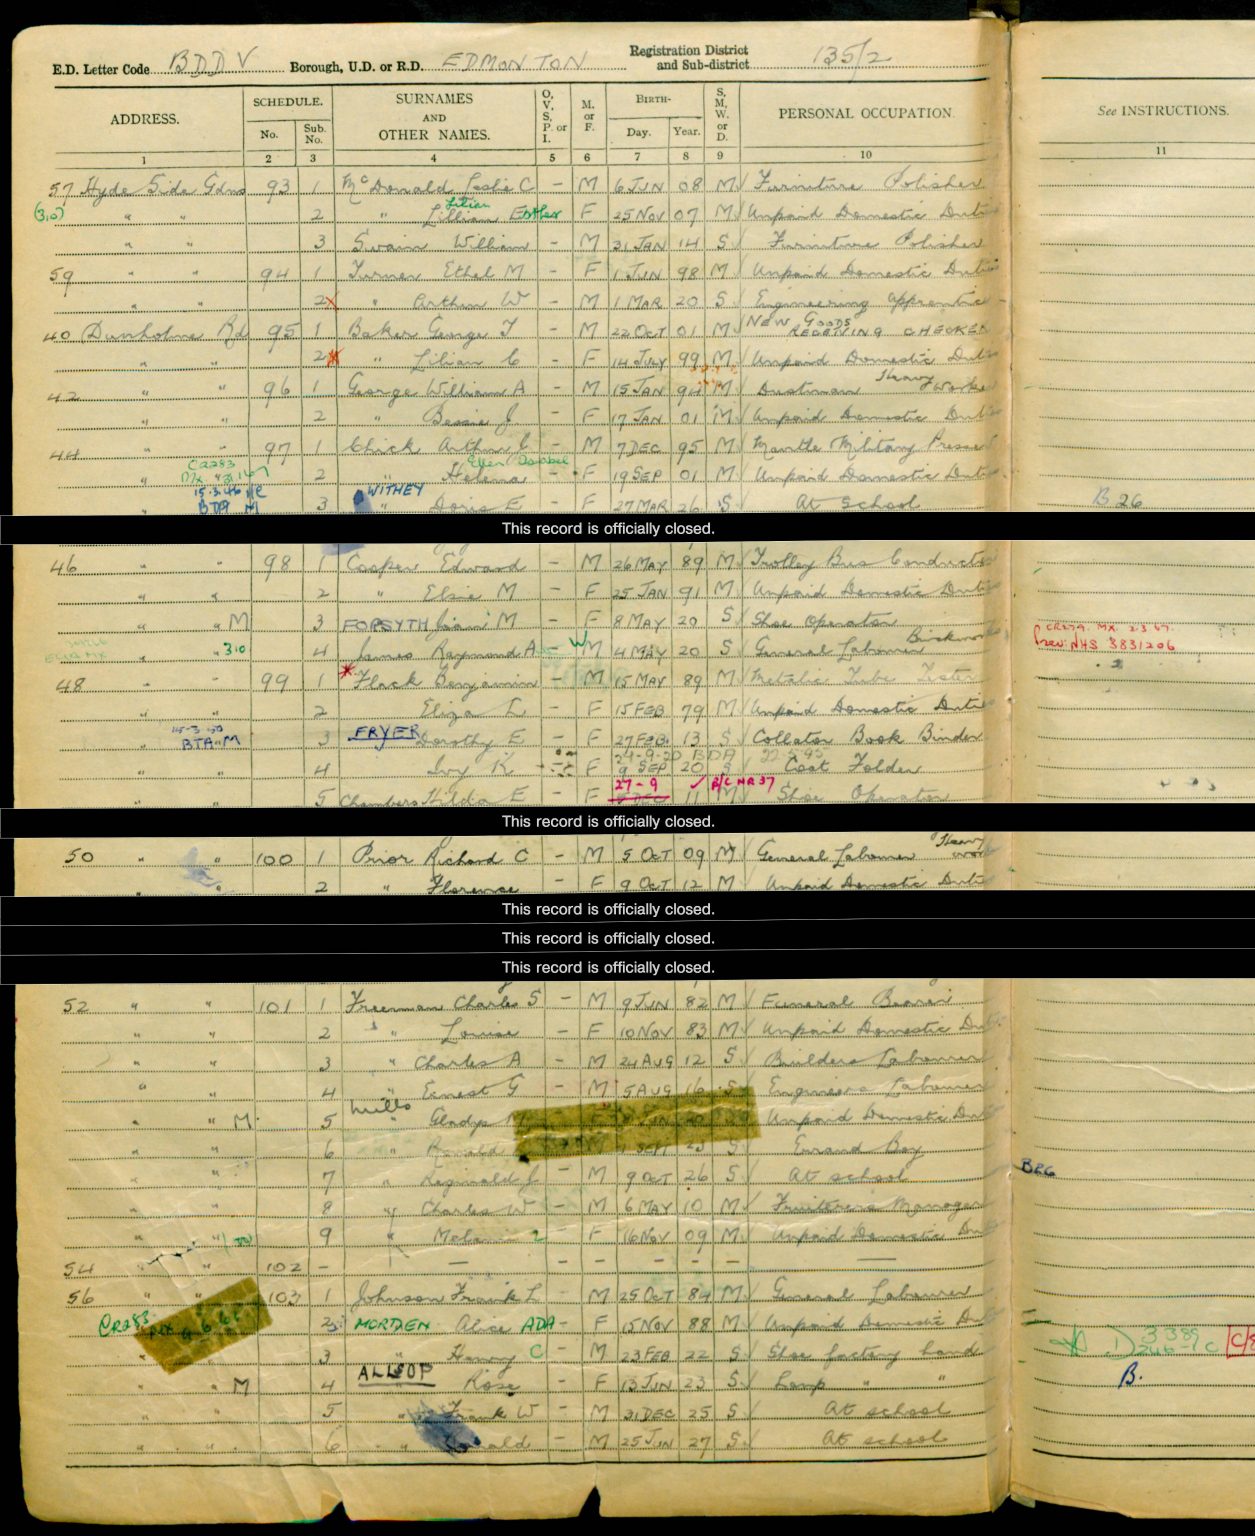 E.D. Letter Code BDDV Borough, U.D. or R.D. EDMONTON Registration District and Sub-district 135/2
ADDRESS. SCHEDULE. No. Sub. No. SURNAMES AND OTHER NAMES. O, V, S, P, or I. M. or F. BIRTH- Day. Year. S, M, W, or D. PERSONAL OCCUPATION. See INSTRUCTIONS.
1 2 3 4 5 6 7 8 9 10 11
57 Hyde Side Gdns 93 1 McDonald Leslie C - M 6 JUN 08 M Furniture Polisher
Lilian
(310) " " 2 " Lillian Esther F 25 NOV 07 M Unpaid Domestic Duties
" " 3 Swain William - M 31 JAN 14 S Furniture Polisher
59 " " 94 1 Turner Ethel M - F 1 JUN 98 M Unpaid Domestic Duties
" " 2 " Arthur W - M 1 MAR 20 S Engineering Apprentice
40 Dunholme Rd 95 1 Baker George T - M 22 OCT 01 M NEW GOODS RECEIVING CHECKER
" " 2 " Lilian C - F 14 JULY 99 M Unpaid Domestic Duties
42 " " 96 1 George William A - M 15 JAN 94 M Dustman Heavy Worker
" " 2 " Bessie J - F 17 JAN 01 M Unpaid Domestic Duties
44 " " 97 1 Chick Arthur C - M 7 DEC 95 M Mantle Military Presser
CR283 Ellen Isabel
" 2 " Helena - F 19 SEP 01 M Unpaid Domestic Duties
15.3.46 WITHEY
" 3 " Doris E - F 27 MAR 26 S At School B 26
This record is officially closed.
46 " " 98 1 Cooper Edward - M 26 MAY 89 M Trolley Bus Conductor
" " 2 " Elsie M - F 25 JAN 91 M Unpaid Domestic Duties
" " M 3 FORSYTH M - F 8 MAY 20 S Shoe Operator CR279. MX. 2.3.67.
" " 310 4 James Raymond A - W M 4 MAY 20 S General Labourer Brickworks NHS 3831206
48 " " 99 1 Flack Benjamin - M 15 MAY 89 M Metalic Tube Tester
" " 2 Eliza L - F 15 FEB 79 M Unpaid Domestic Duties
BTA M 3 FRYER Dorothy E - F 27 FEB 13 S Collator Book Binder
24-9-20 BDA
" " 4 Ivy K F 9 SEP 20 S Coat Folder
27-9 B/C HR37
" " 5 Chambers Hilda E - F DEC 11 M Shoe Operator
This record is officially closed.
50 " " 100 1 Prior Richard C - M 5 OCT 09 M General Labourer Heavy work
" " 2 " Florence - F 9 OCT 12 M Unpaid Domestic Duties
This record is officially closed.
This record is officially closed.
This record is officially closed.
52 " " 101 1 Freeman Charles S - M 9 JUN 82 M Funeral Bearer
" " 2 " Louise - F 10 NOV 83 M Unpaid Domestic Duties
" " 3 " Charles A - M 24 AUG 12 S Builders Labourer
" " 4 " Ernest G - M 5 AUG 16 S Engineers Labourer
Mills
" " M 5 " Gladys Unpaid Domestic Duties
" " 6 " Ronald SEPT 23 S Errand Boy
" " 7 " Reginald J - M 9 OCT 26 S At school BRG
" " 8 " Charles W - M 6 MAY 10 M Fruiterers Manager
" " 9 " - F 16 NOV 09 M Unpaid Domestic Duties
54 " " 102 - — - - - - - —
56 " " 103 1 Johnson Frank L - M 25 OCT 84 M General Labourer
CR283 2 MORDEN Alice ADA - F 15 NOV 88 M Unpaid Domestic Duties
" 3 " Henry C - M 23 FEB 22 S Shoe factory hand
" " M 4 ALLSOP Rose - F 13 JUN 23 S Lamp " " B.
" " 5 " Frank W - M 31 DEC 25 S At school
" " 6 " - M 25 JUN 27 S At school